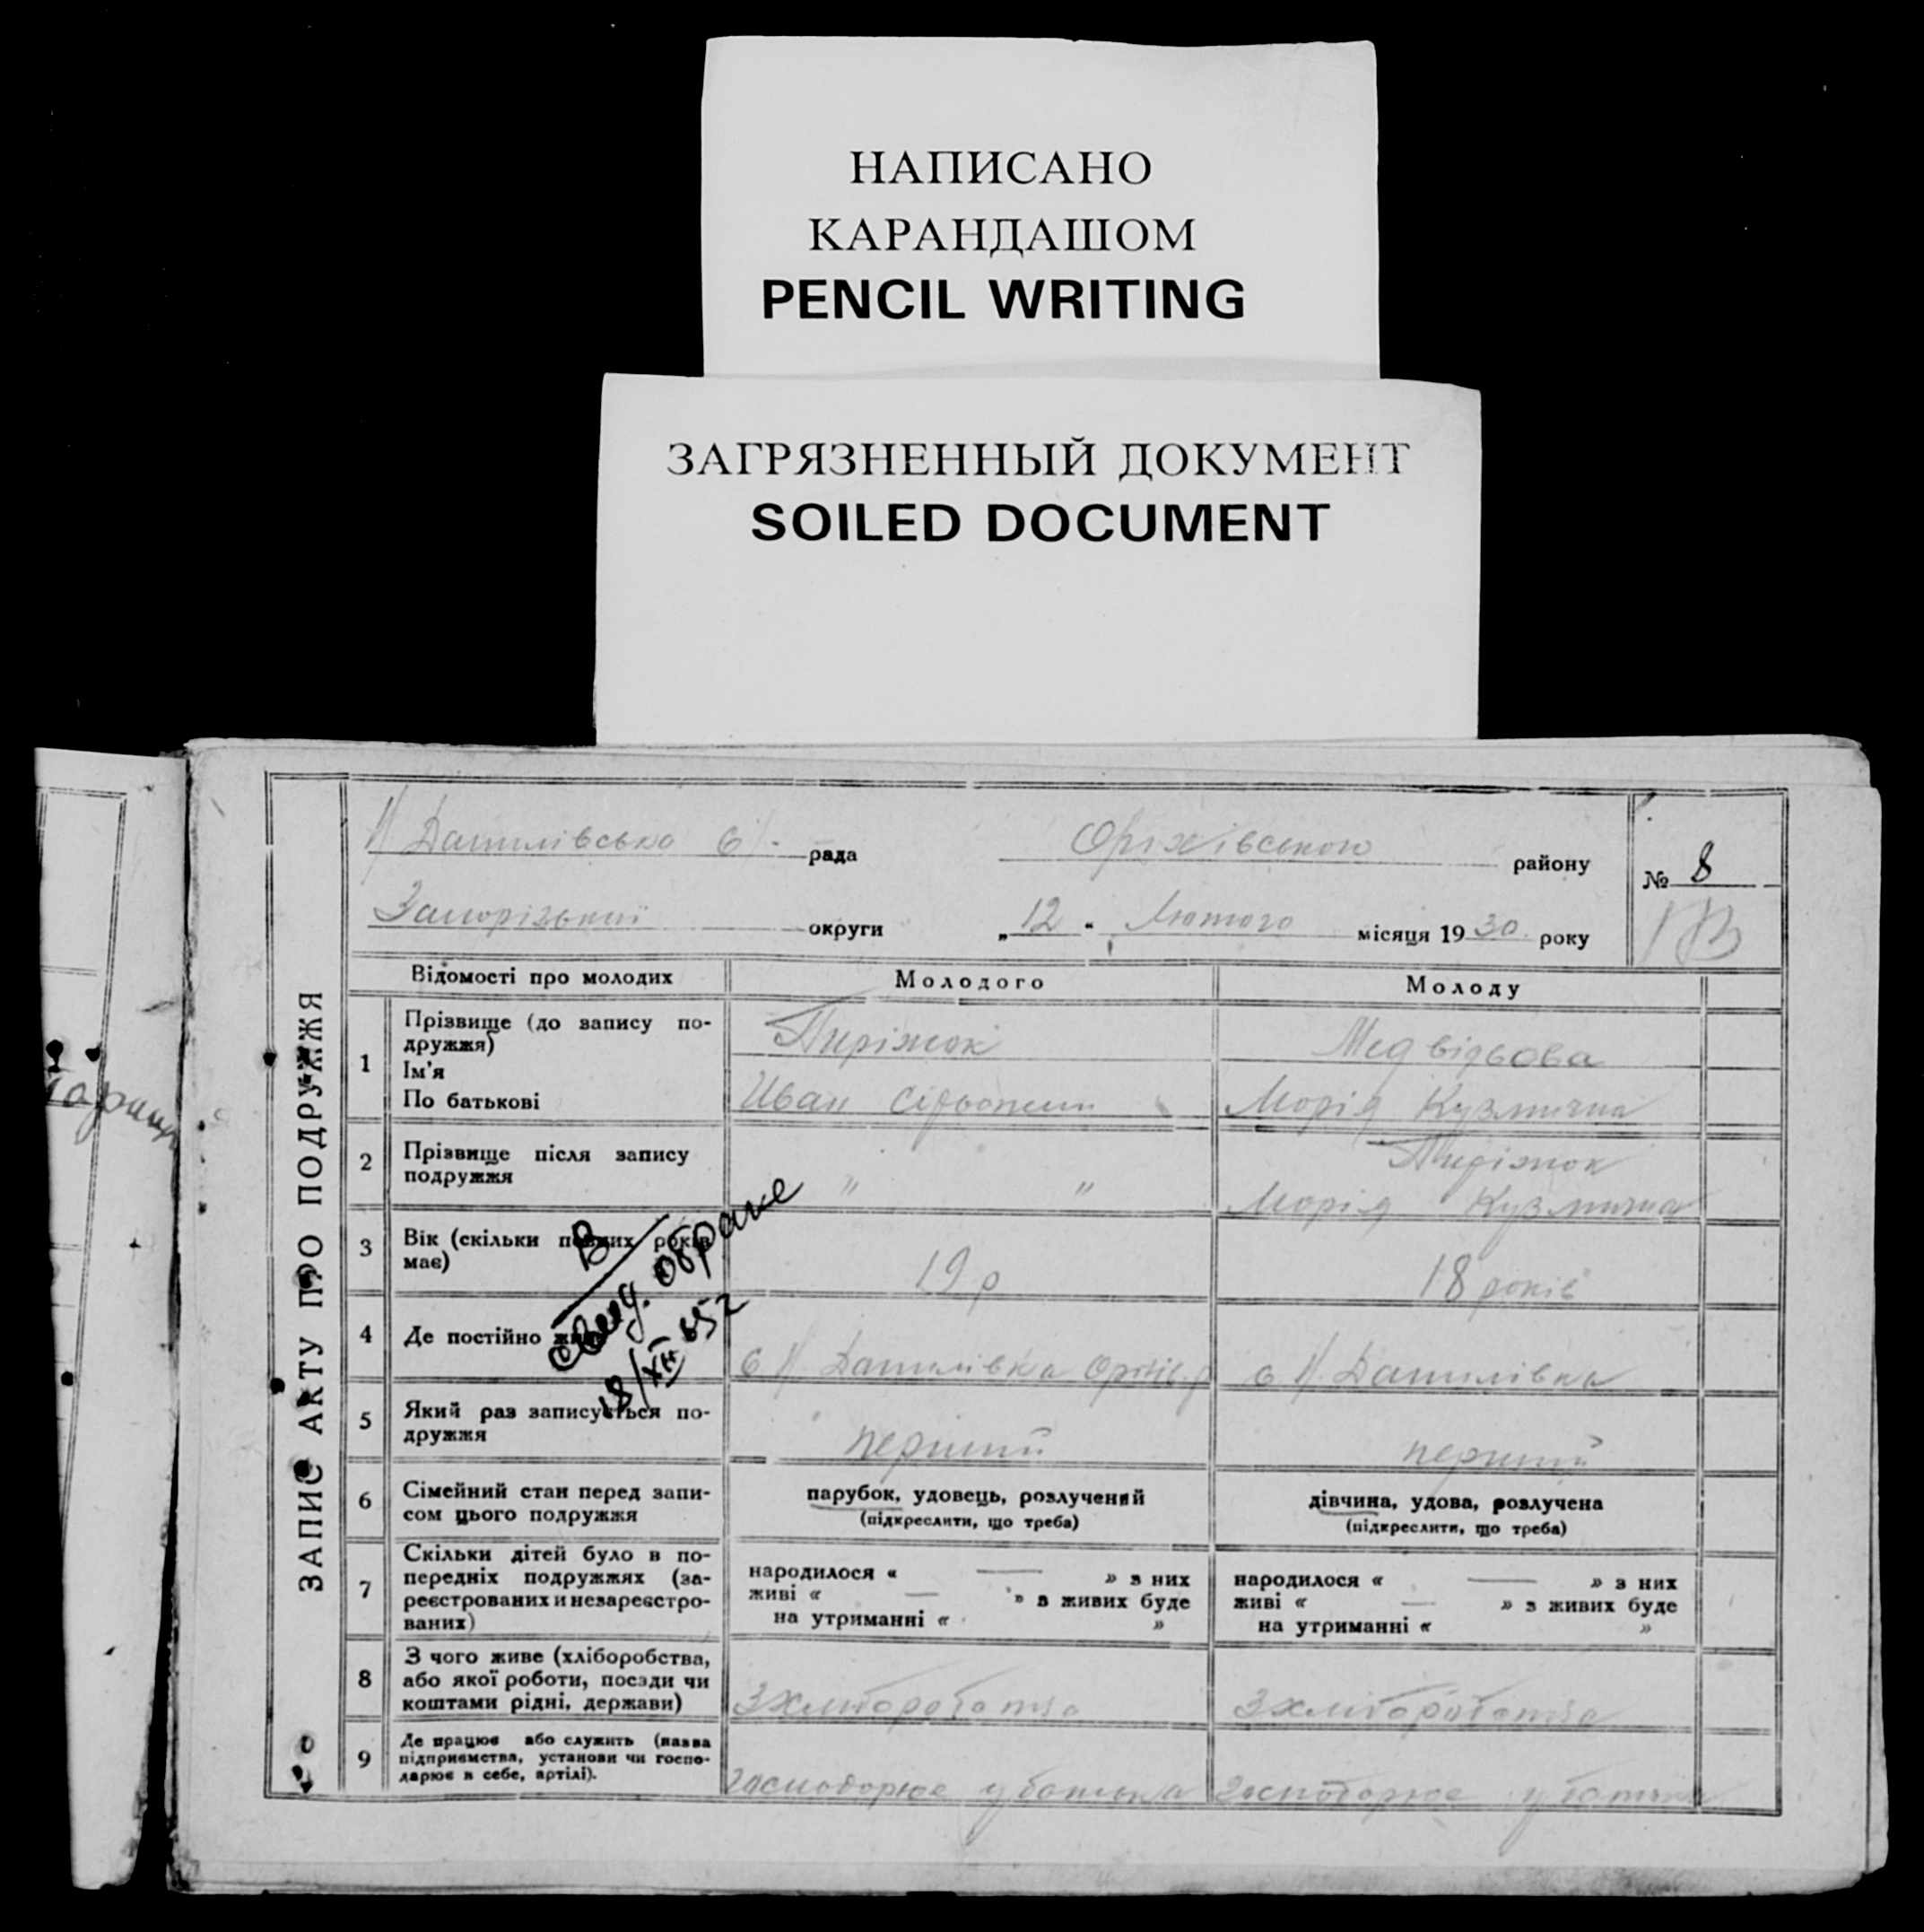 НАПИСАНО
КАРАНДАШОМ
PENCIL WRITING
ЗАГРЯЗНЕННЫЙ ДОКУМЕНТ
SOILED DOCUMENT
ЗАПИС АКТУ ПРО ПОДРУЖЖЯ
Н Данилівсько с/. рада Оріхівського району
№ 8
Запорізький округи „ 12 " Лютого місяця 1930 року
Відомості про молодих Молодого Молоду
1 Прізвище (до запису по-
дружжя)
Ім'я
По батькові
Пиріжок Медвідьова
Иван Марія Кузмична
2 Прізвище після запису
подружжя
" " Пиріжок
Марія Кузмична
3 Вік (скільки повних років
має)
19 р 18 років
В
Свид. о браке
18/XII 1952
4 Де постійно живе
с Н. Данилівка Оріхів. р с Н. Данилівка
5 Який раз записується по-
дружжя
перший перший
6 Сімейний стан перед запи-
сом цього подружжя
парубок, удовець, розлучений
(підкреслити, що треба)
дівчина, удова, розлучена
(підкреслити, що треба)
7 Скільки дітей було в по-
передніх подружжях (за-
реєстрованих и незареєстро-
ваних)
народилося « — » з них
живі « — » з живих буде
на утриманні « »
народилося « — » з них
живі « — » з живих буде
на утриманні « »
8 З чого живе (хліборобства,
або якої роботи, посади чи
коштами рідні, держави)
З хліборобства З хліборобства
9 Де працює або служить (назва
підприємства, установи чи госпо-
дарює в себе, артілі).
господорює у батька господорює у батька